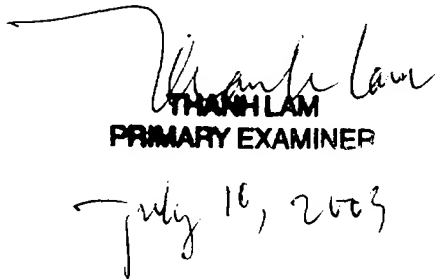 Thanh Lam
THANH LAM
PRIMARY EXAMINER
July 10, 2003